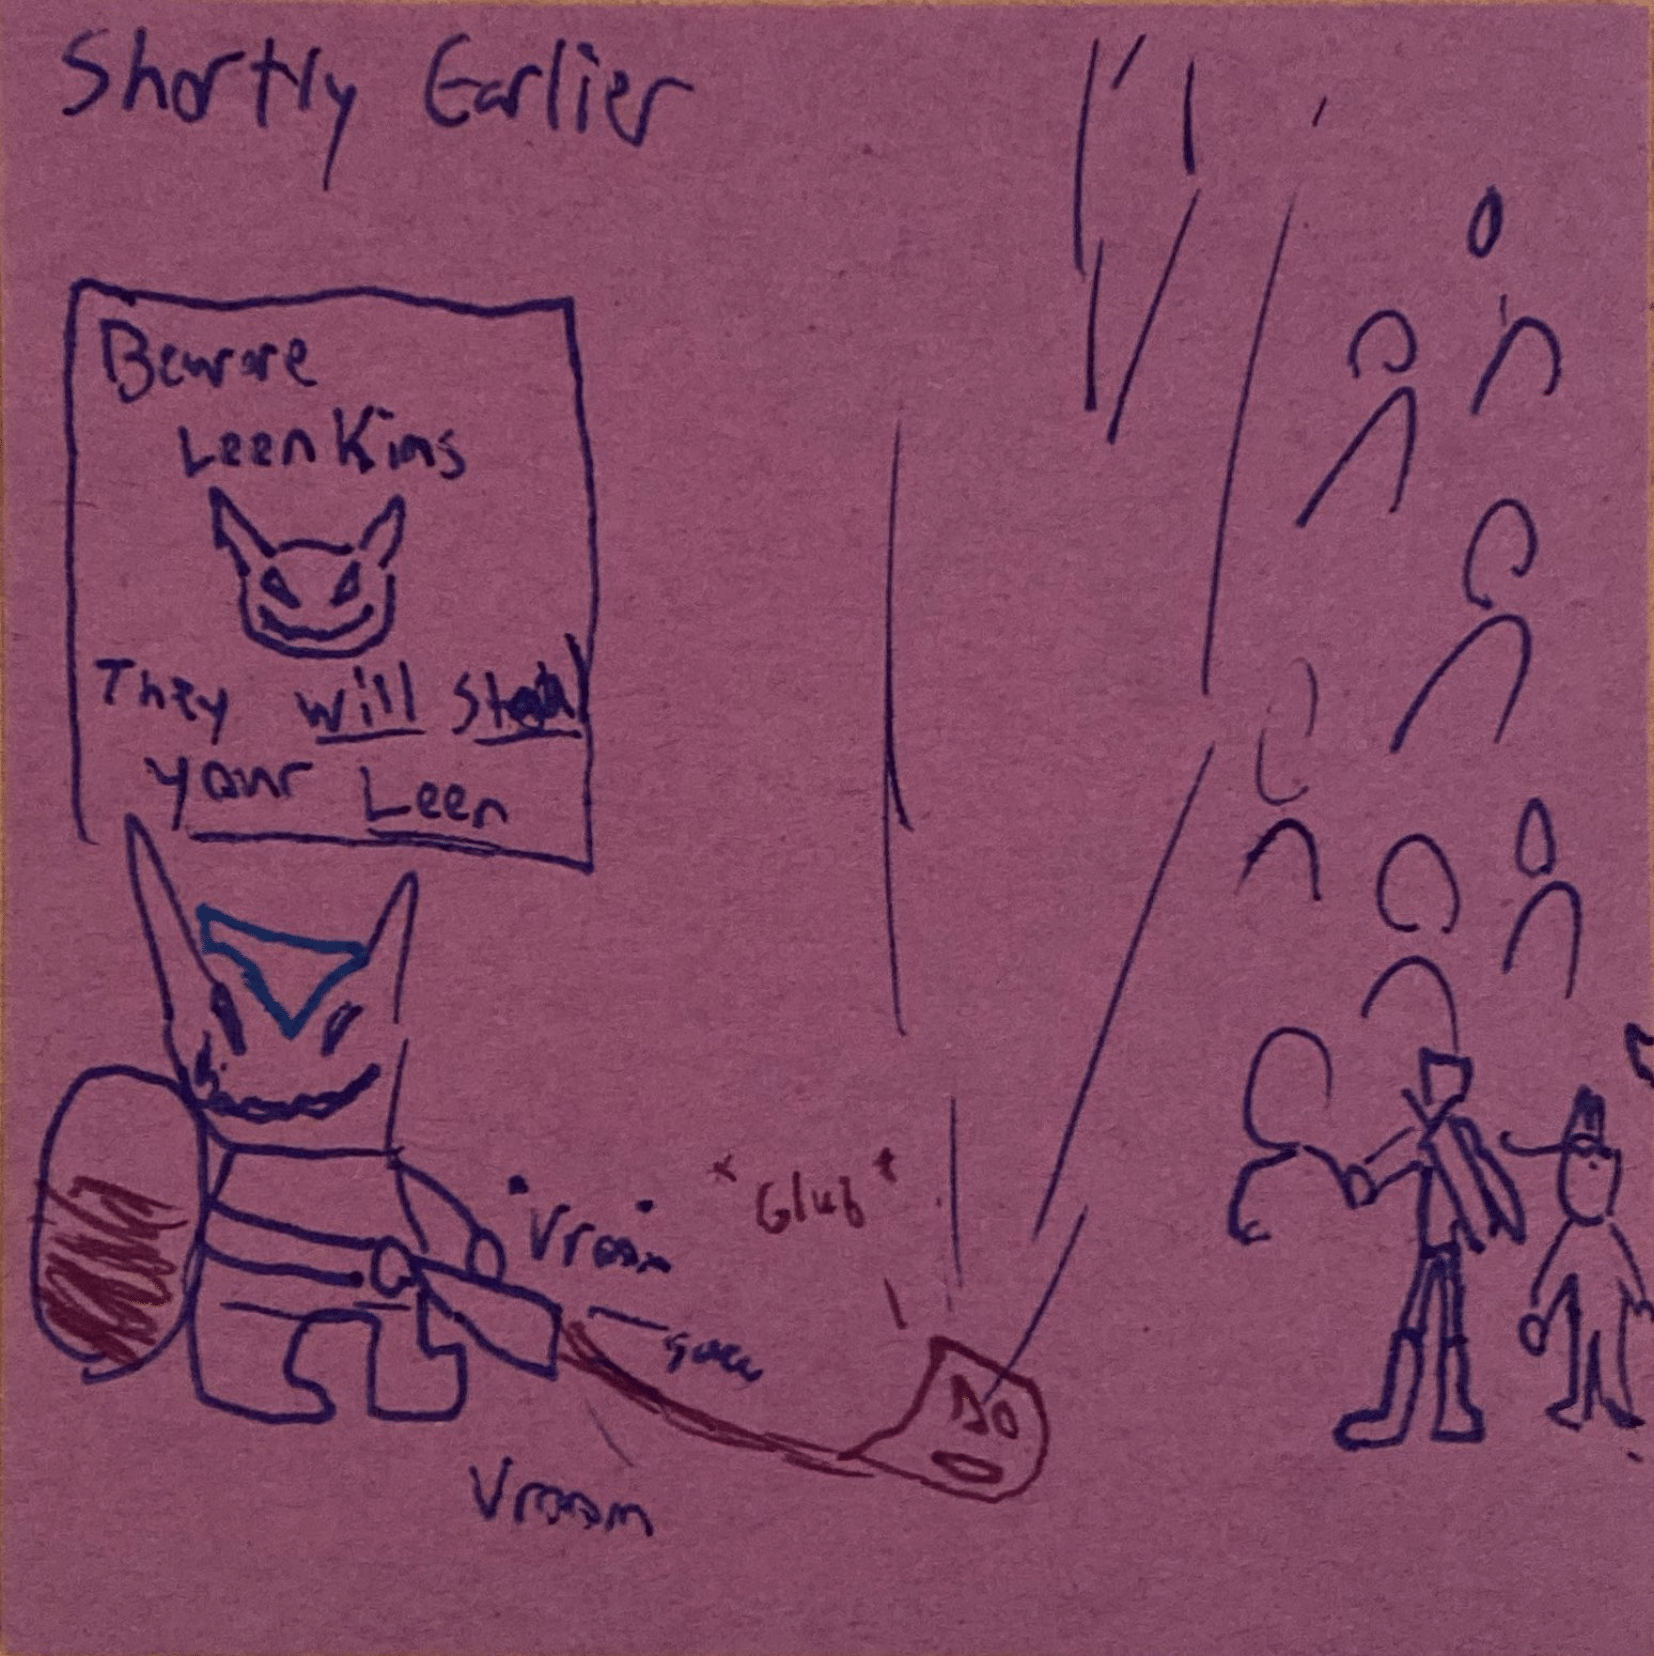 Shortly Earlier
Beware
LeenKins
They will Steal
your Leen
Vroom
*Glub*
Vroom